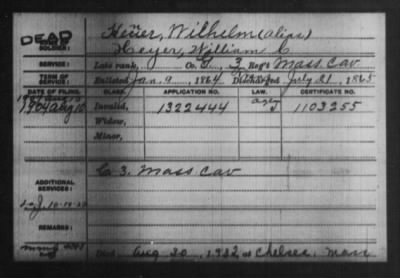 DEAD
NAME OF SOLDIER: Heuer, Wilhelm (alias)
Heyer, William C
SERVICE: Late rank, Co. G, 3 Reg't Mass. Cav
TERM OF SERVICE: Enlisted Jan. 9, 1864 Discharged July 21, 1865
DATE OF FILING. CLASS. APPLICATION NO. LAW. CERTIFICATE NO.
1904 Aug 10 Invalid, 1322444 1103255
Widow,
Minor,
ADDITIONAL SERVICES: Co 3. Mass Cav
REMARKS:
Died Aug 30, 1932 at Chelsea, Mass